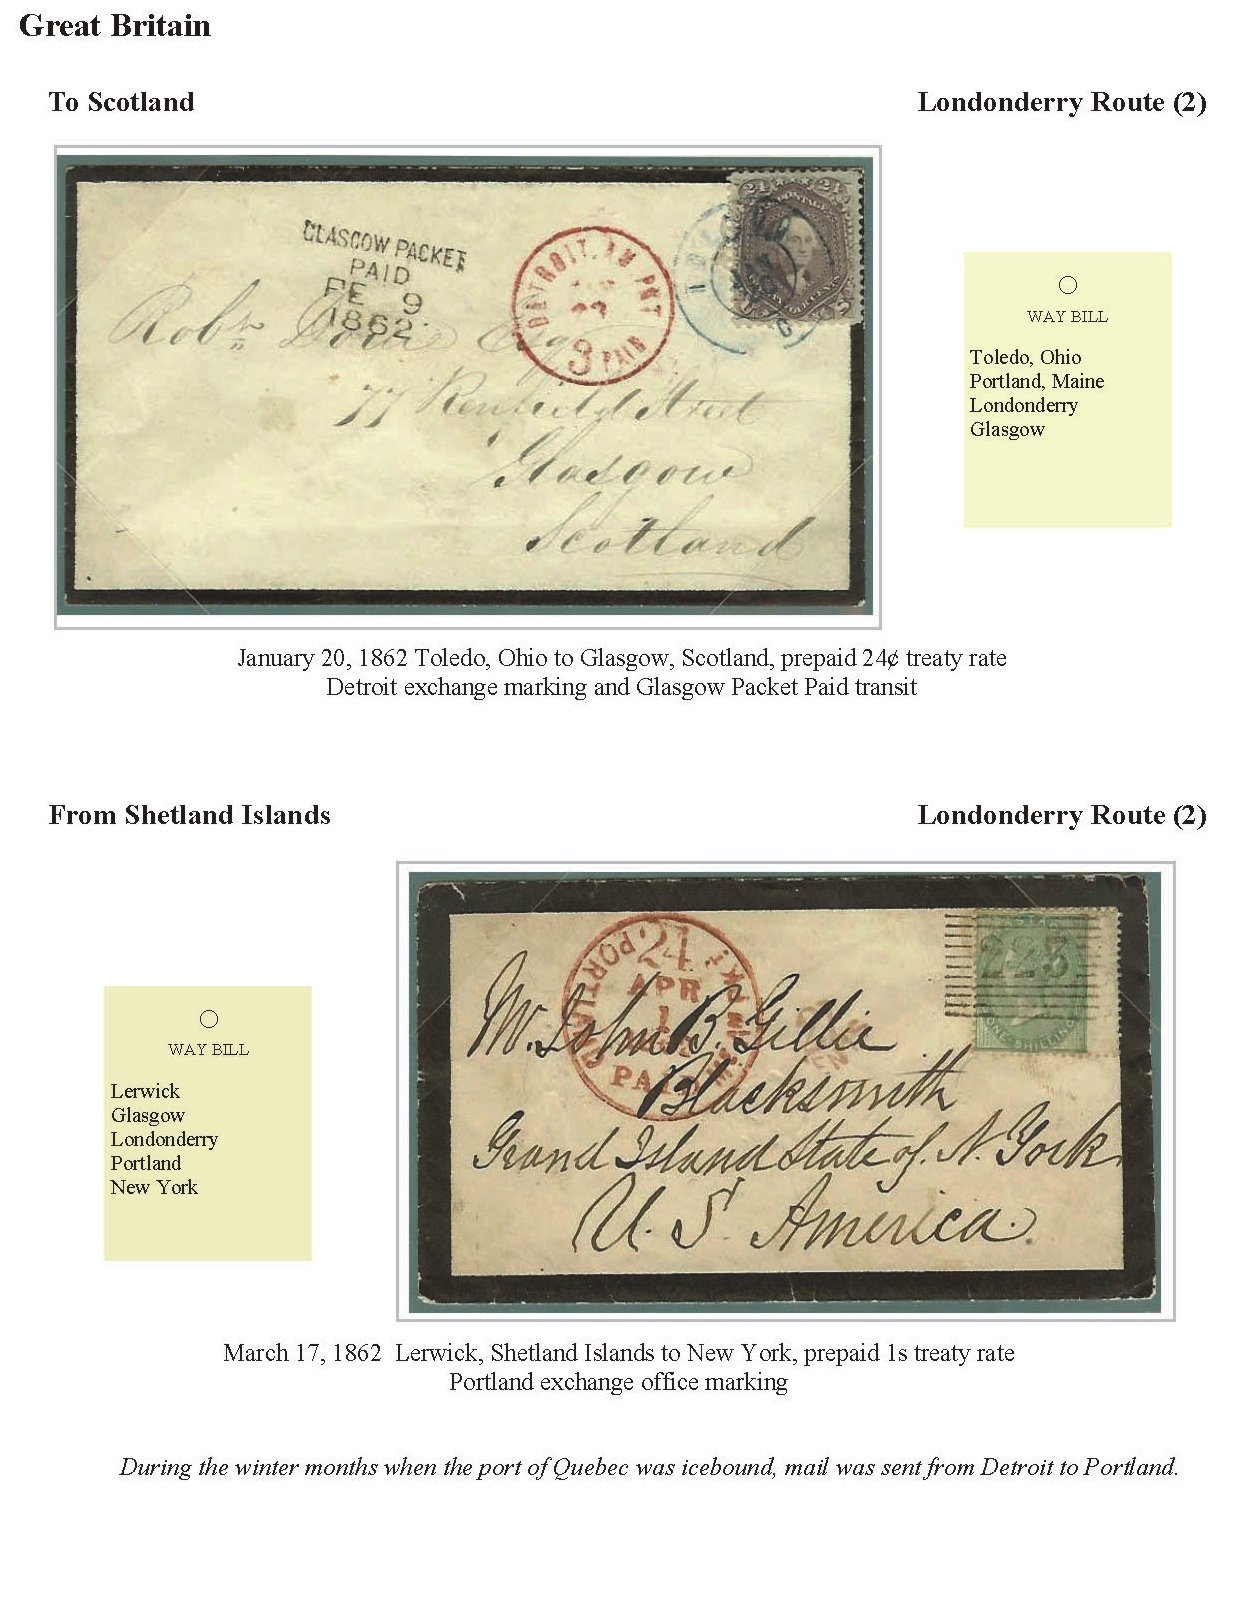 Great Britain
To Scotland
Londonderry Route (2)
GLASGOW PACKET
PAID
FE 9
1862
DETROIT. AM PKT
23
3 PAID
TOLEDO
24 24
POSTAGE
Robt Dow Esq
77 Renfield Street
Glasgow
Scotland
WAY BILL
Toledo, Ohio
Portland, Maine
Londonderry
Glasgow
January 20, 1862 Toledo, Ohio to Glasgow, Scotland, prepaid 24¢ treaty rate
Detroit exchange marking and Glasgow Packet Paid transit
From Shetland Islands
Londonderry Route (2)
WAY BILL
Lerwick
Glasgow
Londonderry
Portland
New York
24
PORTLAND
APR
1
PAID
223
ONE SHILLING
Mr. John B. Gillie
Blacksmith
Grand Island State of N. York
U. S. America.
March 17, 1862 Lerwick, Shetland Islands to New York, prepaid 1s treaty rate
Portland exchange office marking
During the winter months when the port of Quebec was icebound, mail was sent from Detroit to Portland.